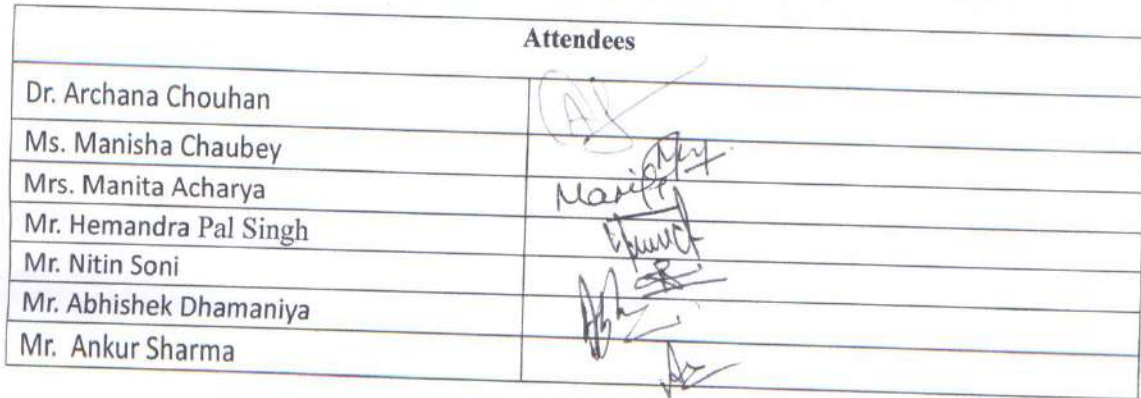 Attendees
Dr. Archana Chouhan
Ms. Manisha Chaubey
Mrs. Manita Acharya
Mr. Hemandra Pal Singh
Mr. Nitin Soni
Mr. Abhishek Dhamaniya
Mr. Ankur Sharma